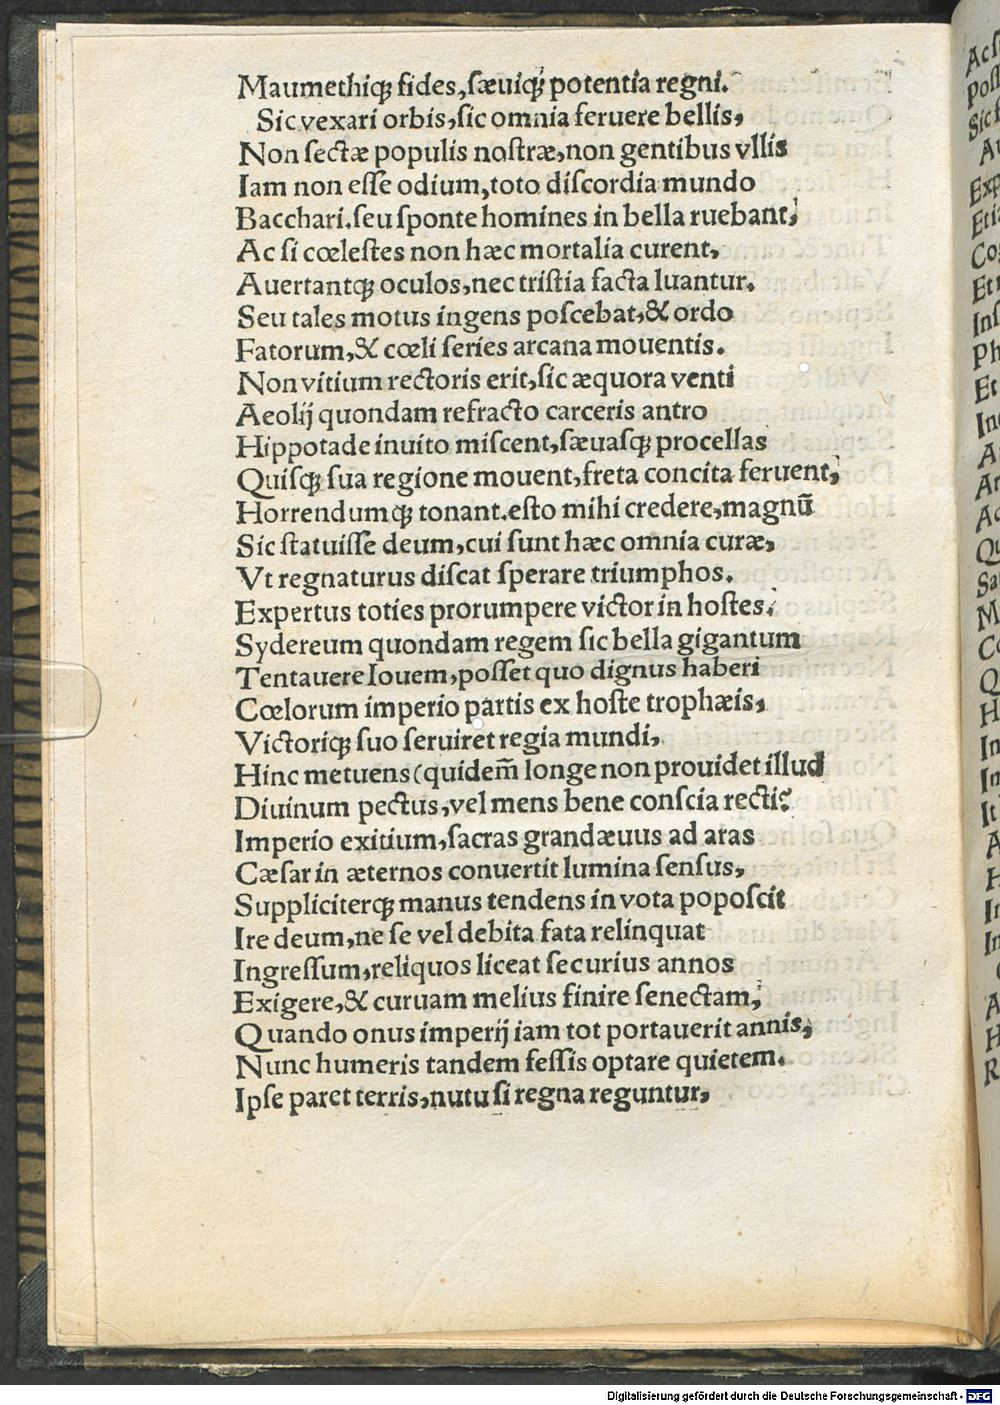 Maumethiqꝫ fides, sæuiqꝫ potentia regni.
Sic vexari orbis, sic omnia feruere bellis,
Non sectæ populis nostræ, non gentibus vllis
Iam non esse odium, toto discordia mundo
Bacchari. seu sponte homines in bella ruebant,
Ac si cœlestes non hæc mortalia curent,
Auertantqꝫ oculos, nec tristia facta luantur.
Seu tales motus ingens poscebat, & ordo
Fatorum, & cœli series arcana mouentis.
Non vitium rectoris erit, sic æquora venti
Aeolij quondam refracto carceris antro
Hippotade inuito miscent, sæuasqꝫ procellas
Quisqꝫ sua regione mouent, freta concita feruent,
Horrendumqꝫ tonant. esto mihi credere, magnū
Sic statuisse deum, cui sunt hæc omnia curæ,
Vt regnaturus discat sperare triumphos.
Expertus toties prorumpere victor in hostes.
Sydereum quondam regem sic bella gigantum
Tentauere Iouem, posset quo dignus haberi
Cœlorum imperio partis ex hoste trophæis,
Victoriqꝫ suo seruiret regia mundi,
Hinc metuens (quidem̄ longe non prouidet illud
Diuinum pectus, vel mens bene conscia recti?
Imperio exitium, sacras grandæuus ad aras
Cæsar in æternos conuertit lumina sensus,
Suppliciterqꝫ manus tendens in vota poposcit
Ire deum, ne se vel debita fata relinquat
Ingressum, reliquos liceat securius annos
Exigere, & curuam melius finire senectam,
Quando onus imperij iam tot portauerit annis,
Nunc humeris tandem fessis optare quietem.
Ipse paret terris, nutu si regna reguntur,
Digitalisierung gefördert durch die Deutsche Forschungsgemeinschaft - DFG